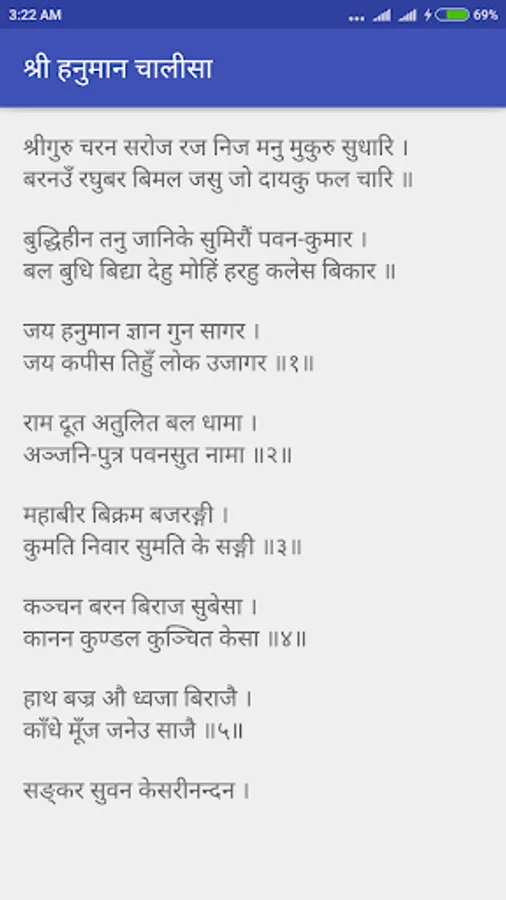 3:22 AM
69%
श्री हनुमान चालीसा
श्रीगुरु चरन सरोज रज निज मनु मुकुरु सुधारि ।
बरनउँ रघुबर बिमल जसु जो दायकु फल चारि ॥
बुद्धिहीन तनु जानिके सुमिरौं पवन-कुमार ।
बल बुधि बिद्या देहु मोहिं हरहु कलेस बिकार ॥
जय हनुमान ज्ञान गुन सागर ।
जय कपीस तिहुँ लोक उजागर ॥१॥
राम दूत अतुलित बल धामा ।
अञ्जनि-पुत्र पवनसुत नामा ॥२॥
महाबीर बिक्रम बजरङ्गी ।
कुमति निवार सुमति के सङ्गी ॥३॥
कञ्चन बरन बिराज सुबेसा ।
कानन कुण्डल कुञ्चित केसा ॥४॥
हाथ बज्र औ ध्वजा बिराजै ।
काँधे मूँज जनेउ साजै ॥५॥
सङ्कर सुवन केसरीनन्दन ।